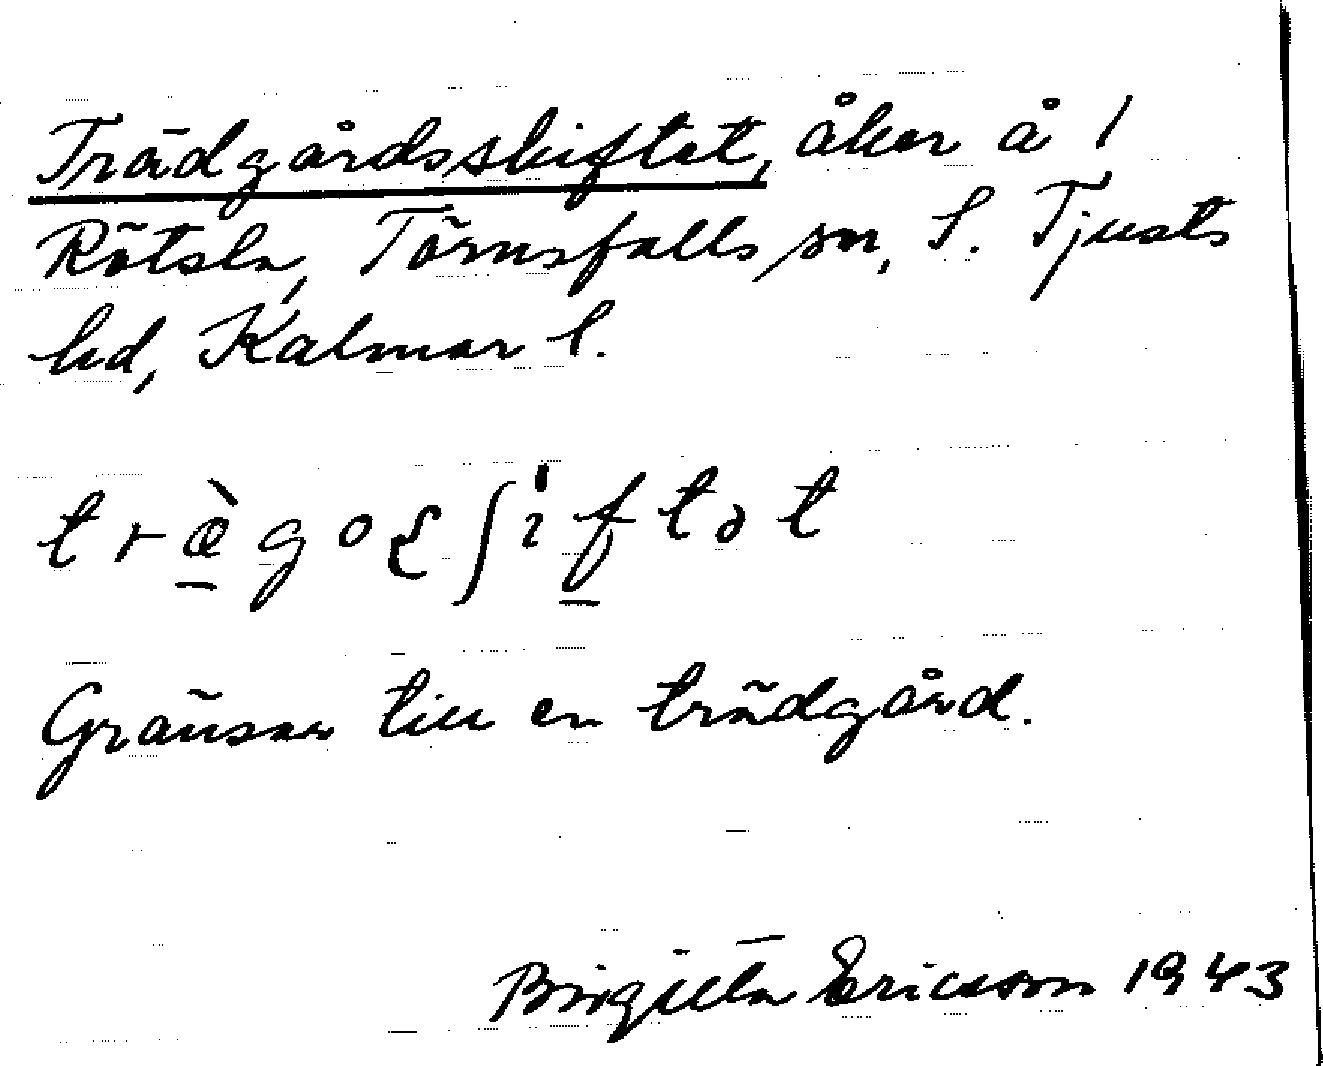 Trädgårdsskiftet, åker å 1
Rötsla, Törnsfalls sn, S. Tjusts
hd, Kalmar l.
træ̀goʂʃiftət
Gränsar till en trädgård.
Birgitta Ericsson 1943